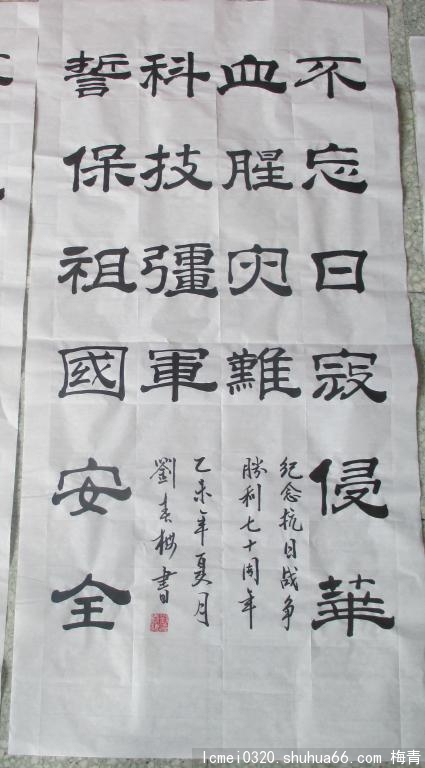 不忘日寇侵華
血腥灾難
科技彊軍
誓保祖國安全
纪念抗日战争
勝利七十周年
乙未年夏月
劉春梅書
lcmei0320.shuhua66.com 梅青